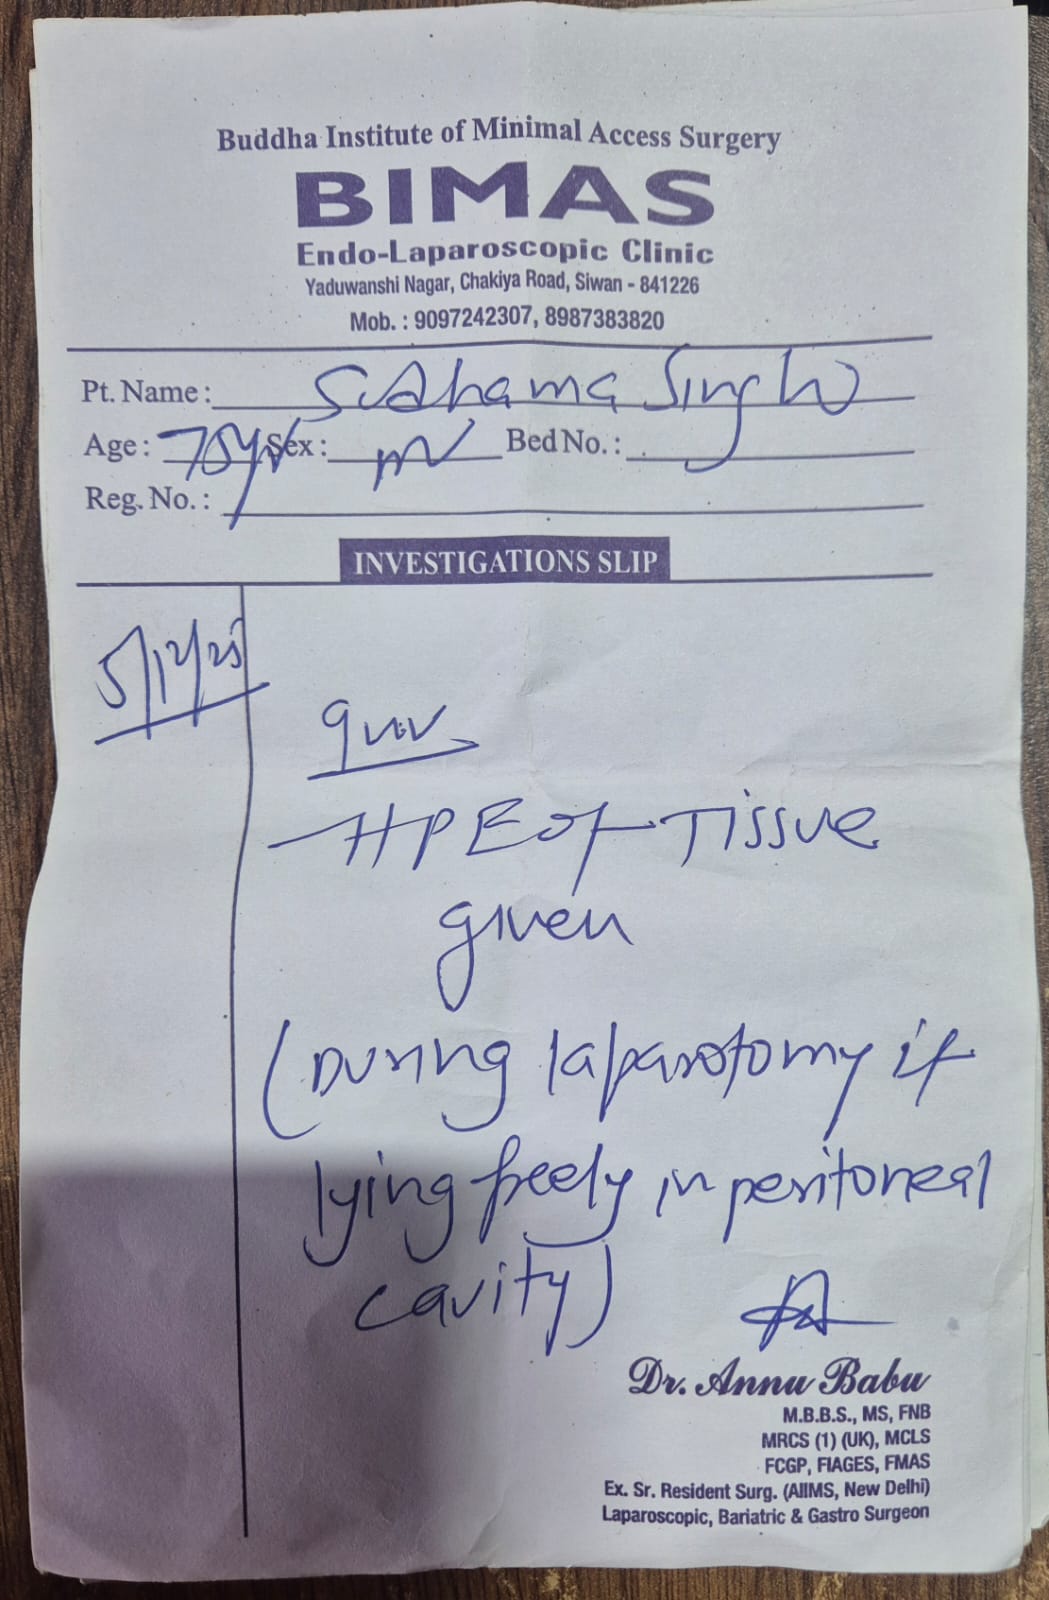 Buddha Institute of Minimal Access Surgery
BIMAS
Endo-Laparoscopic Clinic
Yaduwanshi Nagar, Chakiya Road, Siwan - 841226
Mob. : 9097242307, 8987383820
Pt. Name : Sudhama Singh
Age : 75yr Sex : M Bed No. :
Reg. No. :
INVESTIGATIONS SLIP
5/12/25
- HPE of Tissue
given
(During laparotomy it
lying freely in peritoneal
cavity)
Dr. Annu Babu
M.B.B.S., MS, FNB
MRCS (1) (UK), MCLS
FCGP, FIAGES, FMAS
Ex. Sr. Resident Surg. (AIIMS, New Delhi)
Laparoscopic, Bariatric & Gastro Surgeon